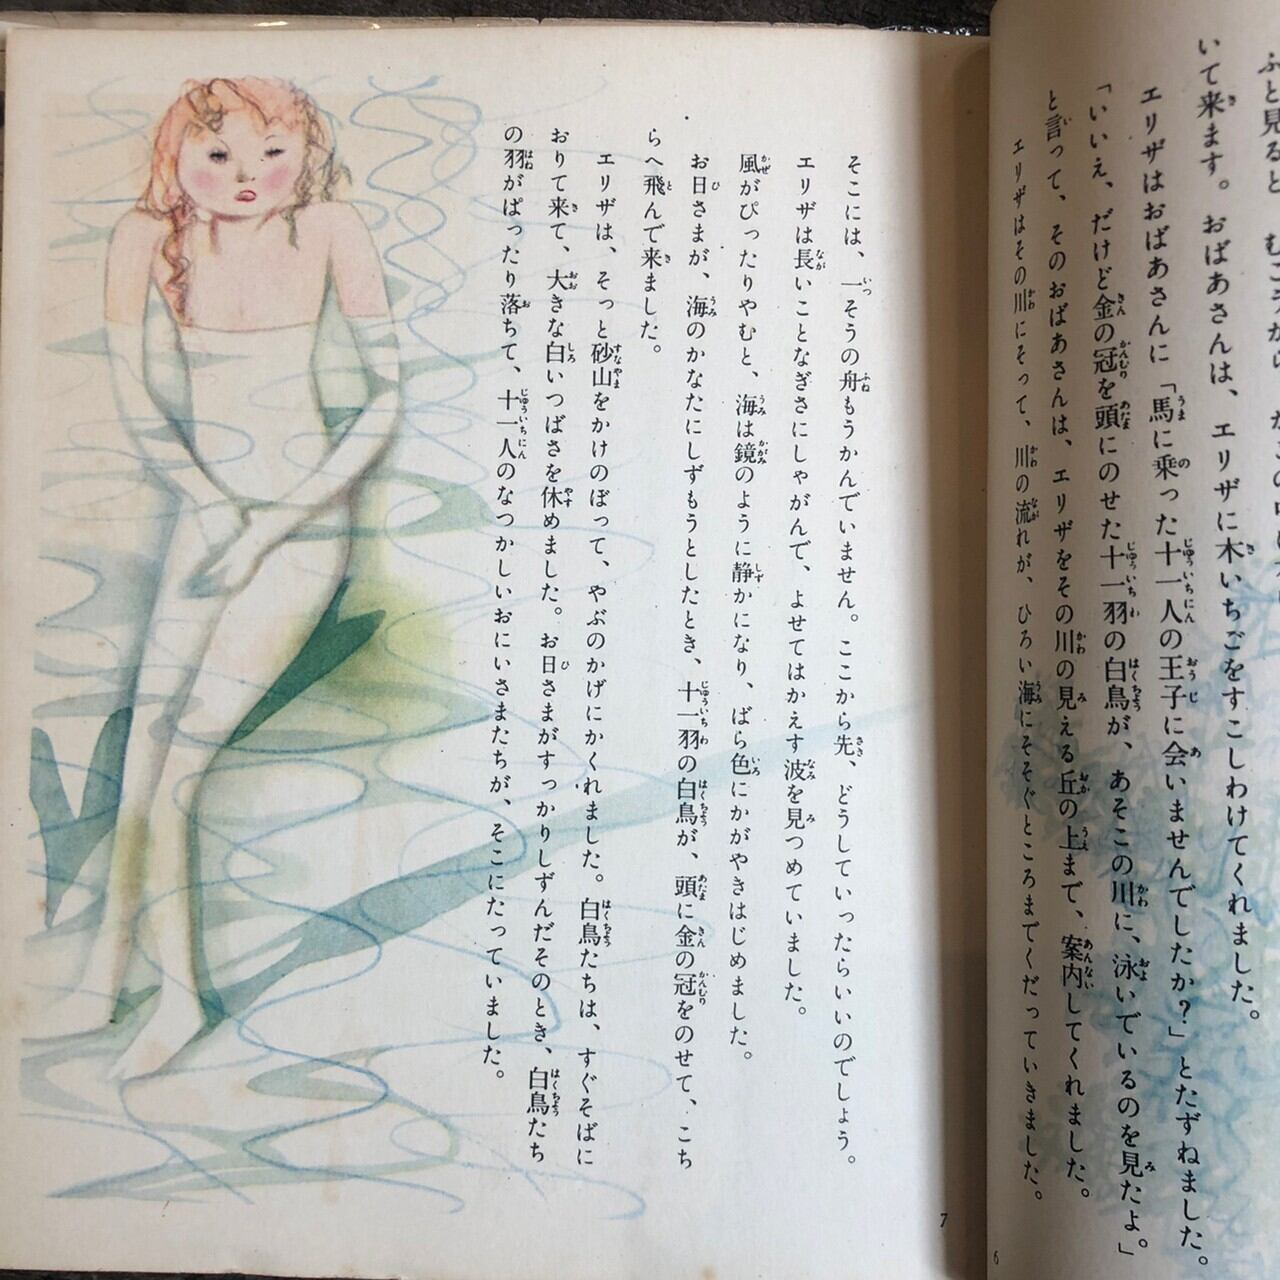 ふと見ると、むこうから、
いて来ます。おばあさんは、エリザに木いちごをすこしわけてくれました。
エリザはおばあさんに「馬に乗った十一人の王子に会いませんでしたか?」とたずねました。
「いいえ、だけど金の冠を頭にのせた十一羽の白鳥が、あそこの川に、泳いでいるのを見たよ。」
と言って、そのおばあさんは、エリザをその川の見える丘の上まで、案内してくれました。
エリザはその川にそって、川の流れが、ひろい海にそそぐところまでくだっていきました。
6
そこには、一そうの舟もうかんでいません。ここから先、どうしていったらいいのでしょう。
エリザは長いことなぎさにしゃがんで、よせてはかえす波を見つめていました。
風がぴったりやむと、海は鏡のように静かになり、ばら色にかがやきはじめました。
お日さまが、海のかなたにしずもうとしたとき、十一羽の白鳥が、頭に金の冠をのせて、こち
らへ飛んで来ました。
エリザは、そっと砂山をかけのぼって、やぶのかげにかくれました。白鳥たちは、すぐそばに
おりて来て、大きな白いつばさを休めました。お日さまがすっかりしずんだそのとき、白鳥たち
の羽がぱったり落ちて、十一人のなつかしいおにいさまたちが、そこにたっていました。
7